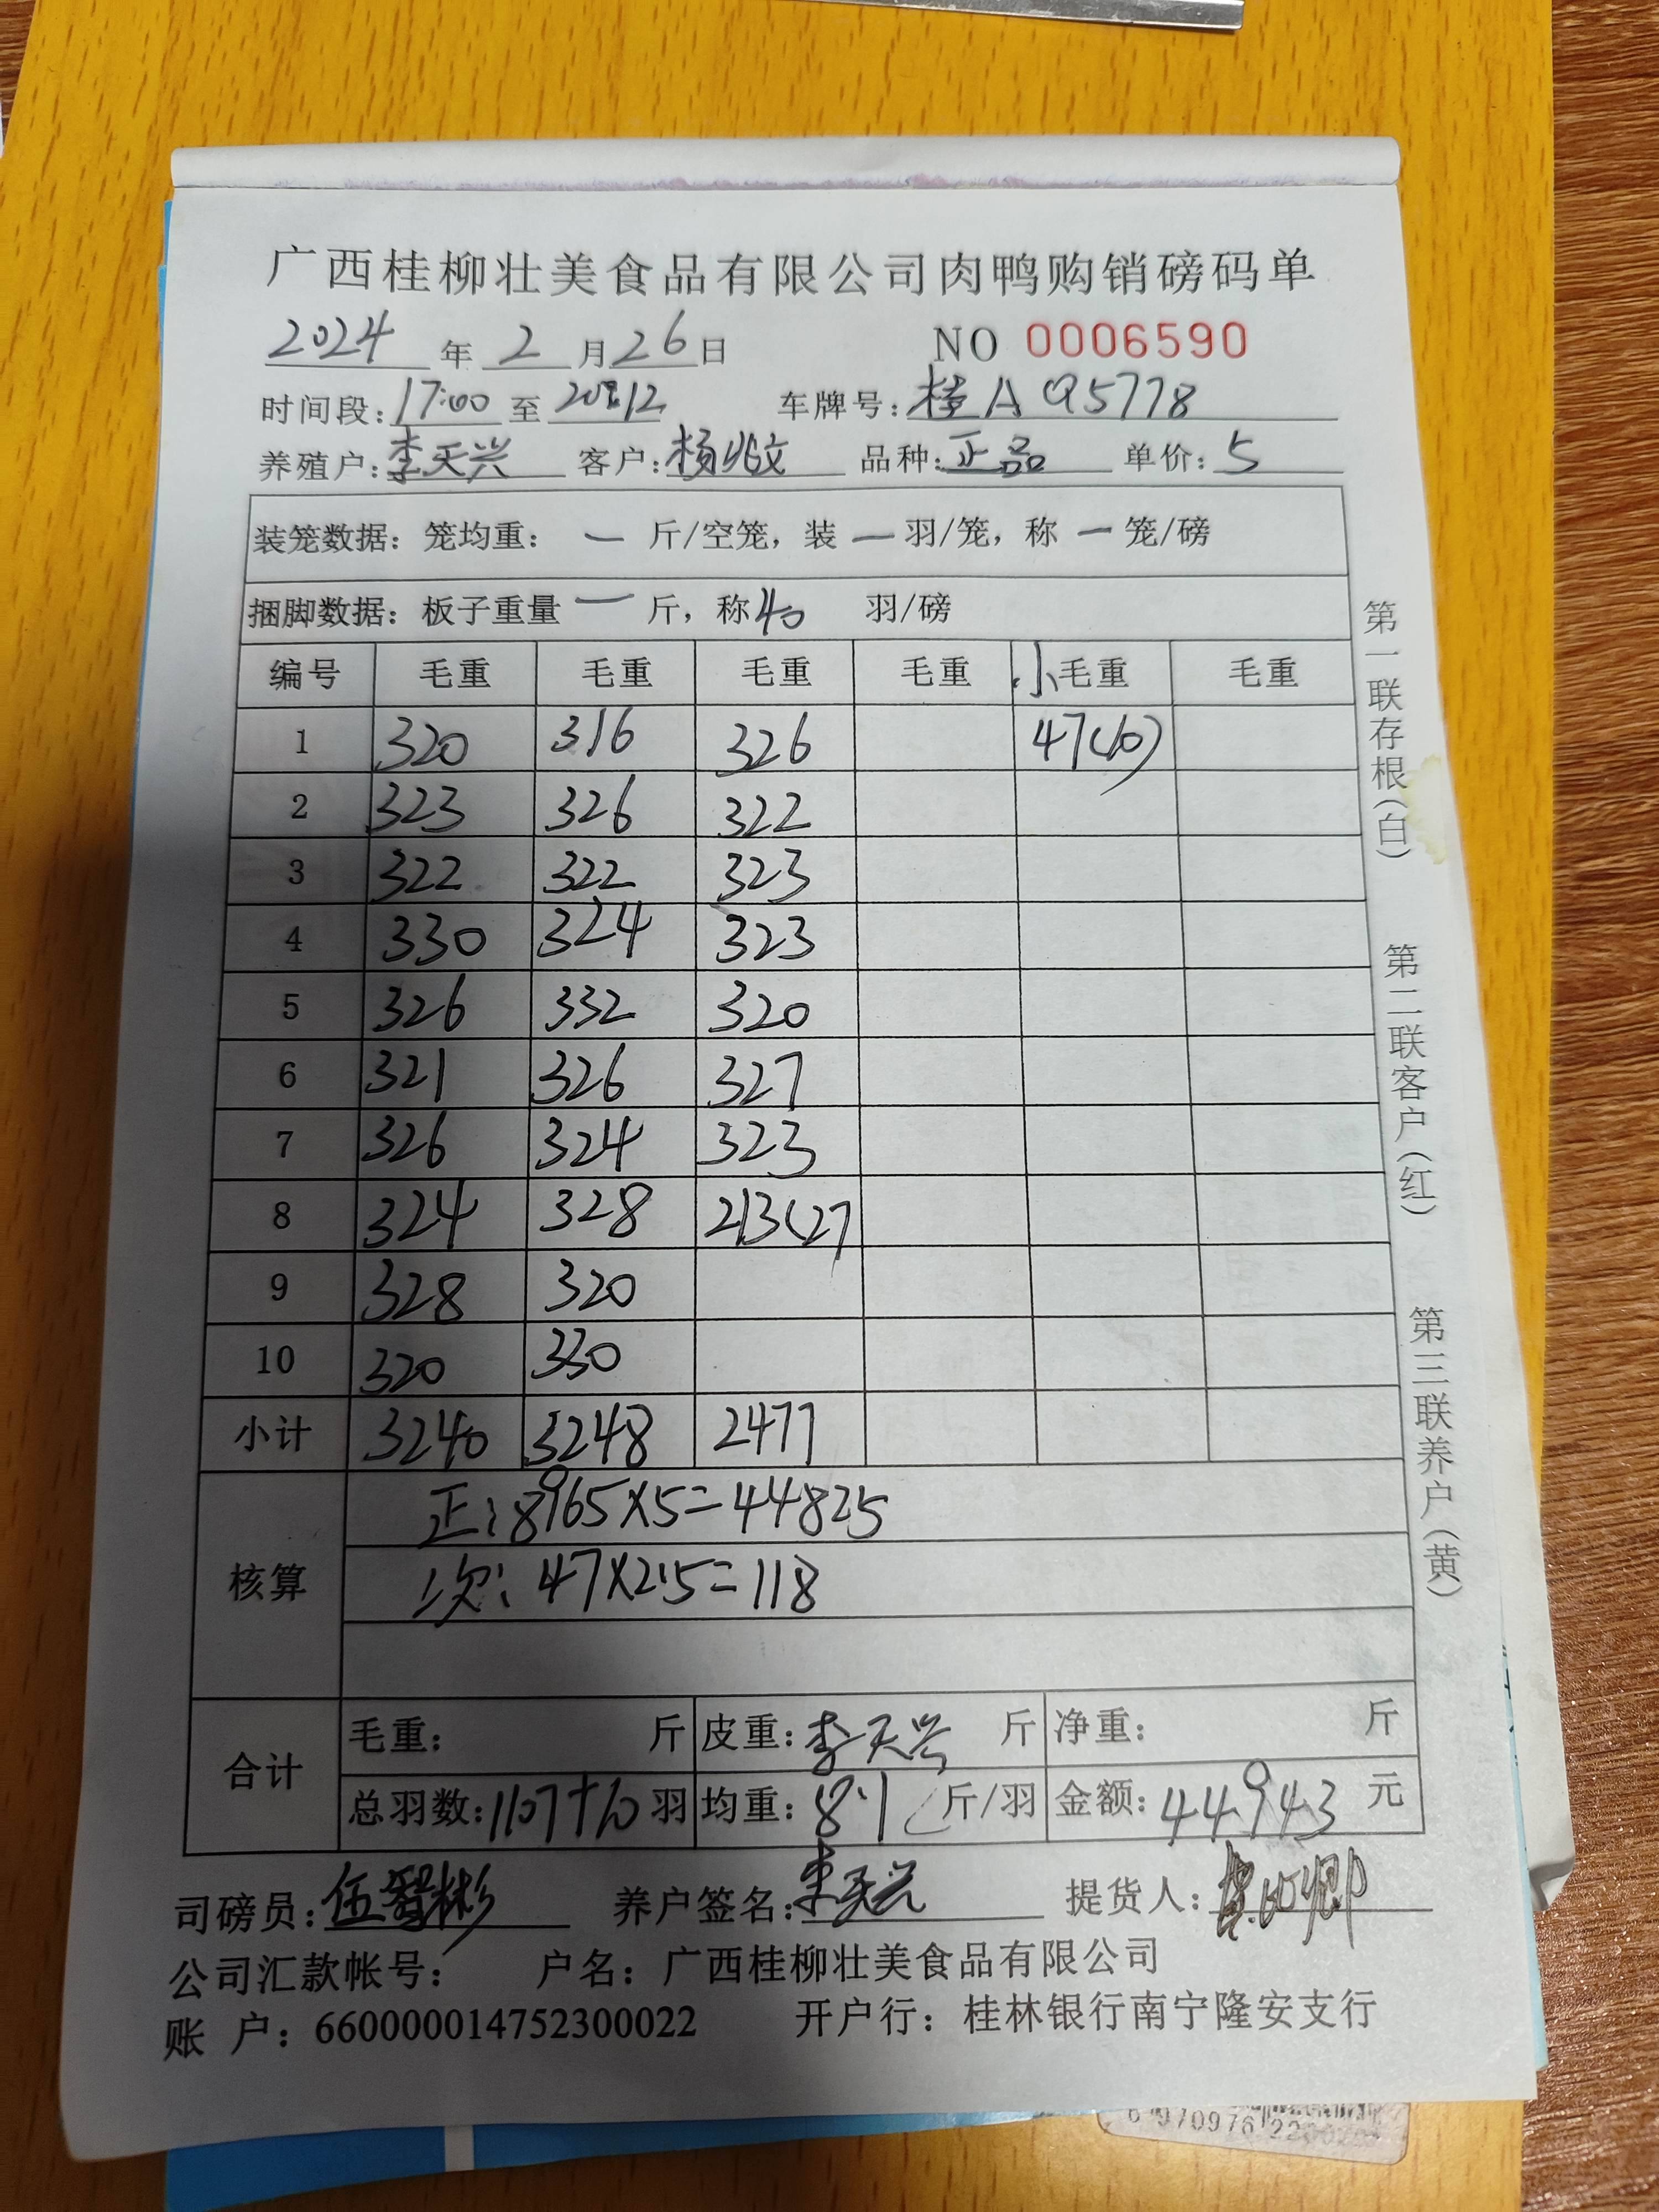 广西桂柳壮美食品有限公司肉鸭购销磅码单
2024 年 2 月 26 日 NO 0006590
时间段: 17:00 至 20:12 车牌号: 桂A Q5778
养殖户: 李天兴 客户: 杨兆文 品种: 正品 单价: 5
装笼数据: 笼均重: — 斤/空笼, 装 — 羽/笼, 称 — 笼/磅
捆脚数据: 板子重量 — 斤, 称 40 羽/磅
编号 毛重 毛重 毛重 毛重 小毛重 毛重
1 320 316 326 47(10)
2 323 326 322
3 322 322 323
4 330 324 323
5 326 332 320
6 321 326 327
7 326 324 323
8 324 328 213(27
9 328 320
10 320 330
小计 3240 3248 2477
核算
正: 8965×5=44825
次: 47×2.5=118
合计
毛重: 斤 皮重: 李天兴 斤 净重: 斤
总羽数: 1107+10 羽 均重: 8.1 斤/羽 金额: 44943 元
司磅员: 伍智彬 养户签名: 李天兴 提货人:
公司汇款帐号: 户名: 广西桂柳壮美食品有限公司
账 户: 660000014752300022 开户行: 桂林银行南宁隆安支行
第一联存根(白)
第二联客户(红)
第三联养户(黄)